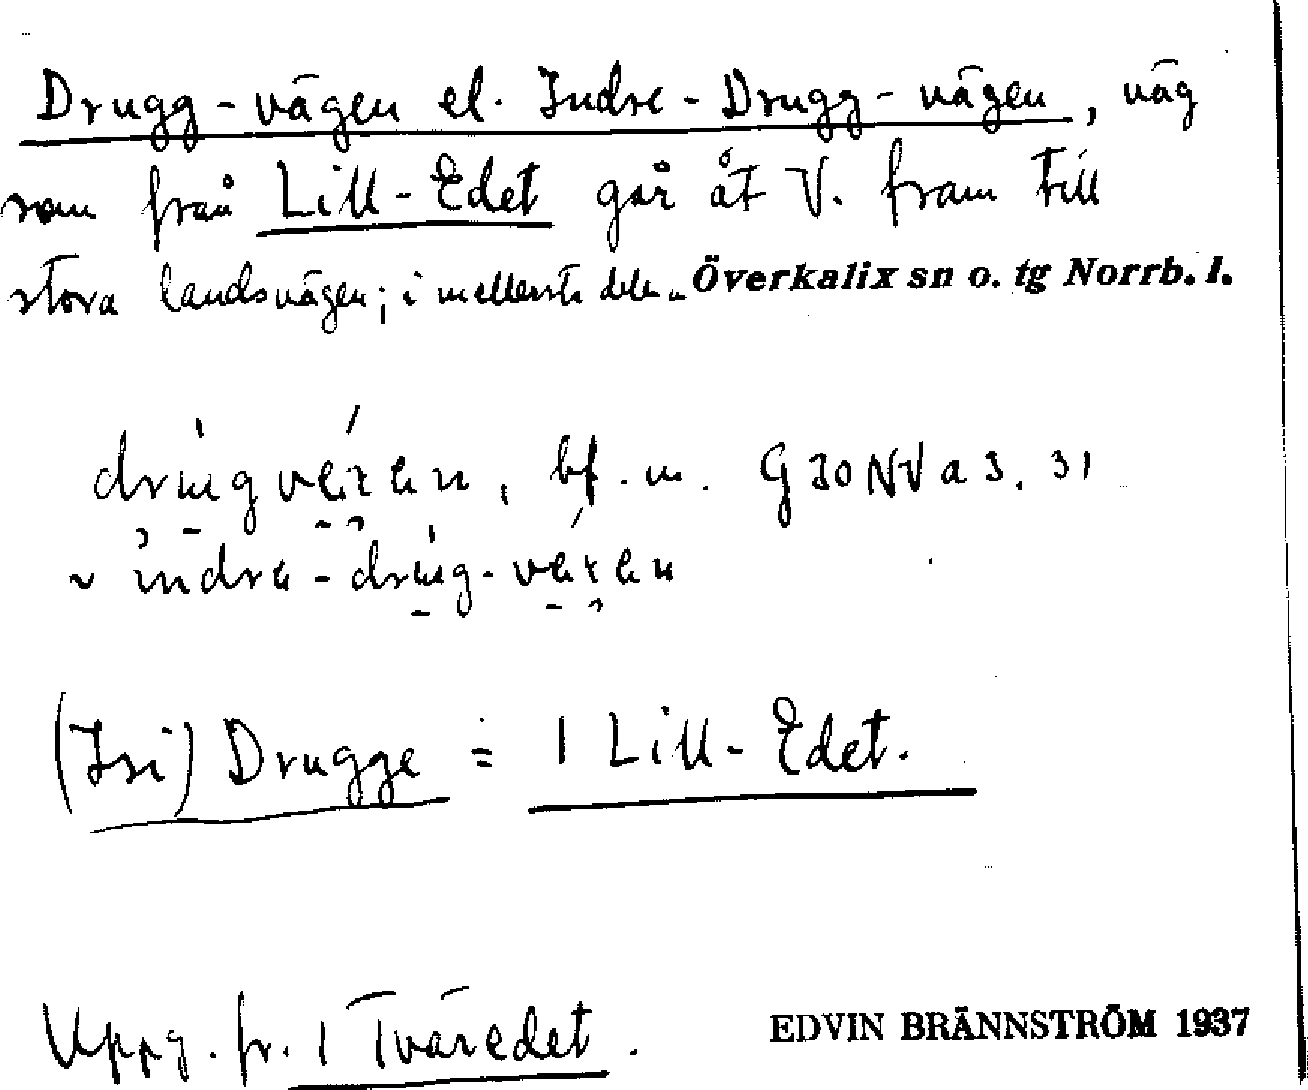 Drugg-vägen el. Indre-Drugg-vägen, väg
som från Lill-Edet går åt V. fram till
stora landsvägen; i mellersta delen Överkalix sn o. tg Norrb. l.
bf. m. G30NVa3. 31
~ indra-
(Isi) Drugge = 1 Lill-Edet.
Uppg. fr. 1 Tväredet.
EDVIN BRÄNNSTRÖM 1937